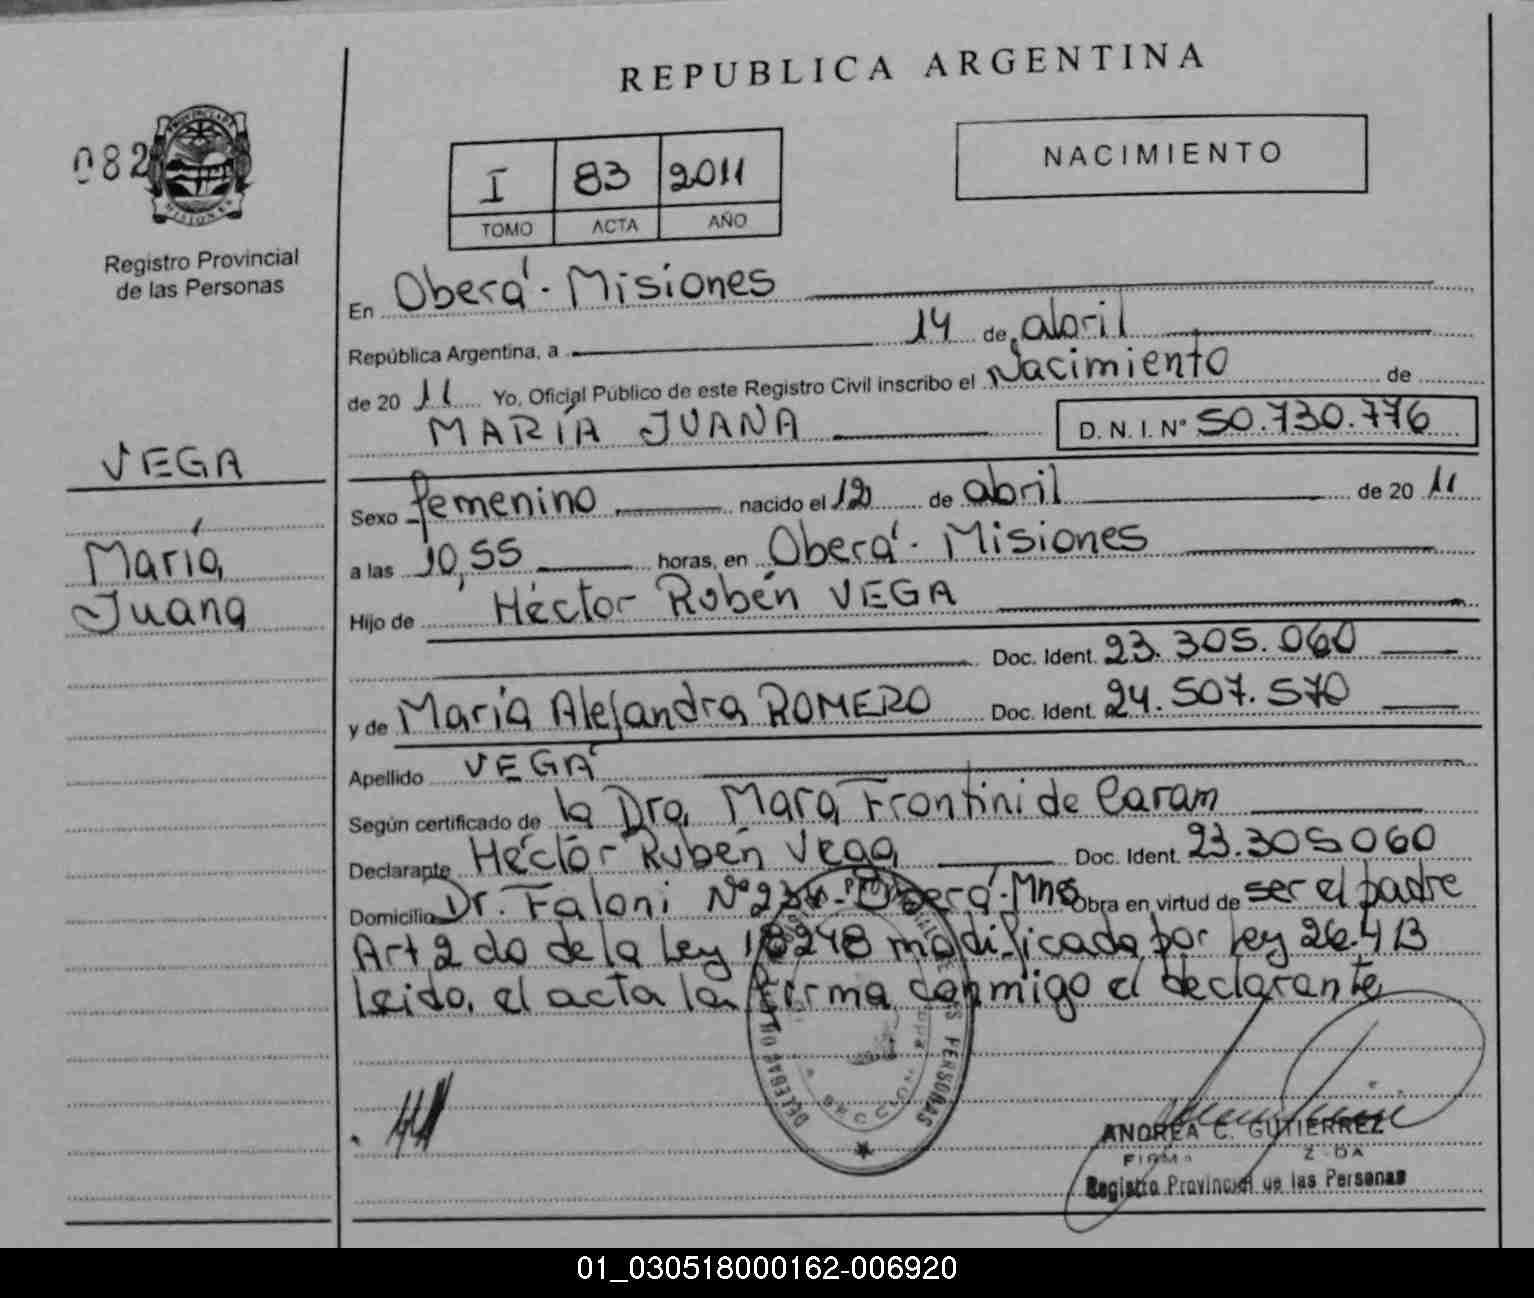 REPUBLICA ARGENTINA
082
PROVINCIA DE
MISIONES
Registro Provincial
de las Personas
I 83 2011
TOMO ACTA AÑO
NACIMIENTO
En Oberá - Misiones
República Argentina, a 14 de abril
de 20 11 Yo, Oficial Público de este Registro Civil inscribo el Nacimiento de
MARÍA JUANA D. N. I. N° 50.730.776
VEGA
María
Juana
Sexo femenino nacido el 12 de abril de 20 11
a las 10,55 horas, en Oberá - Misiones
Hijo de Héctor Rubén VEGA
Doc. Ident. 23.305.060
y de María Alejandra ROMERO Doc. Ident. 24.507.570
Apellido VEGA
Según certificado de la Dra. Mara Frontini de Caram
Declarante Héctor Rubén Vega Doc. Ident. 23.305060
Domicilio Dr. Faloni N° Oberá - Mnes Obra en virtud de ser el padre
Art 2 do de la Ley 18248 modificada por Ley 26.413
leido, el acta la firma conmigo el declarante
PERSONAS
ANDREA C. GUTIERREZ
Registro Provincial de las Personas
01_030518000162-006920